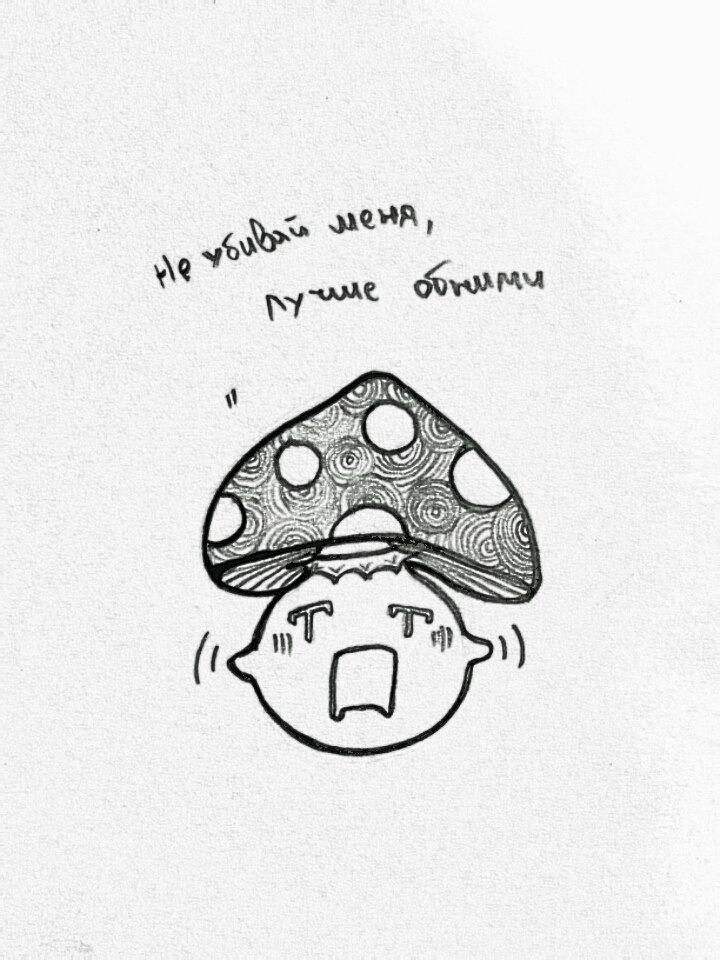 Не убивай меня,
лучше обними